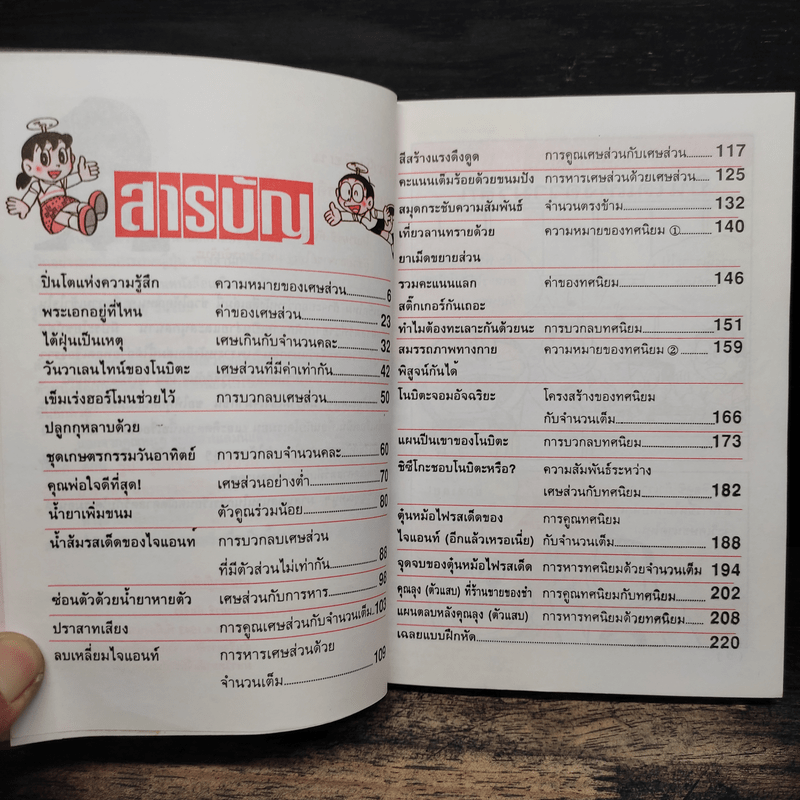 สารบัญ
ปิ่นโตแห่งความรู้สึก ความหมายของเศษส่วน 6
พระเอกอยู่ที่ไหน ค่าของเศษส่วน 23
ไต้ฝุ่นเป็นเหตุ เศษเกินกับจำนวนคละ 32
วันวาเลนไทน์ของโนบิตะ เศษส่วนที่มีค่าเท่ากัน 42
เข็มเร่งฮอร์โมนช่วยไว้ การบวกลบเศษส่วน 50
ปลูกกุหลาบด้วย
ชุดเกษตรกรรมวันอาทิตย์ การบวกลบจำนวนคละ 60
คุณพ่อใจดีที่สุด! เศษส่วนอย่างต่ำ 70
น้ำยาเพิ่มขนม ตัวคูณร่วมน้อย 80
น้ำส้มรสเด็ดของไจแอนท์ การบวกลบเศษส่วน
ที่มีตัวส่วนไม่เท่ากัน 88
ซ่อนตัวด้วยน้ำยาหายตัว เศษส่วนกับการหาร 98
ปราสาทเสียง การคูณเศษส่วนกับจำนวนเต็ม 103
ลบเหลี่ยมไจแอนท์ การหารเศษส่วนด้วย
จำนวนเต็ม 109
สีสร้างแรงดึงดูด การคูณเศษส่วนกับเศษส่วน 117
คะแนนเต็มร้อยด้วยขนมปัง การหารเศษส่วนด้วยเศษส่วน 125
สมุดกระชับความสัมพันธ์ จำนวนตรงข้าม 132
เที่ยวลานทรายด้วย ความหมายของทศนิยม ① 140
ยาเม็ดขยายส่วน
รวมคะแนนแลก ค่าของทศนิยม 146
สติ๊กเกอร์กันเถอะ
ทำไมต้องทะเลาะกันด้วยนะ การบวกลบทศนิยม 151
สมรรถภาพทางกาย ความหมายของทศนิยม ② 159
พิสูจน์กันได้
โนบิตะจอมอัจฉริยะ โครงสร้างของทศนิยม
กับจำนวนเต็ม 166
แผนปีนเขาของโนบิตะ การบวกลบทศนิยม 173
ชิซึโกะชอบโนบิตะหรือ? ความสัมพันธ์ระหว่าง
เศษส่วนกับทศนิยม 182
ตุ๋นหม้อไฟรสเด็ดของ การคูณทศนิยม
ไจแอนท์ (อีกแล้วเหรอเนี่ย) กับจำนวนเต็ม 188
จุดจบของตุ๋นหม้อไฟรสเด็ด การหารทศนิยมด้วยจำนวนเต็ม 194
คุณลุง (ตัวแสบ) ที่ร้านขายของชำ การคูณทศนิยมกับทศนิยม 202
แผนตลบหลังคุณลุง (ตัวแสบ) การหารทศนิยมด้วยทศนิยม 208
เฉลยแบบฝึกหัด 220